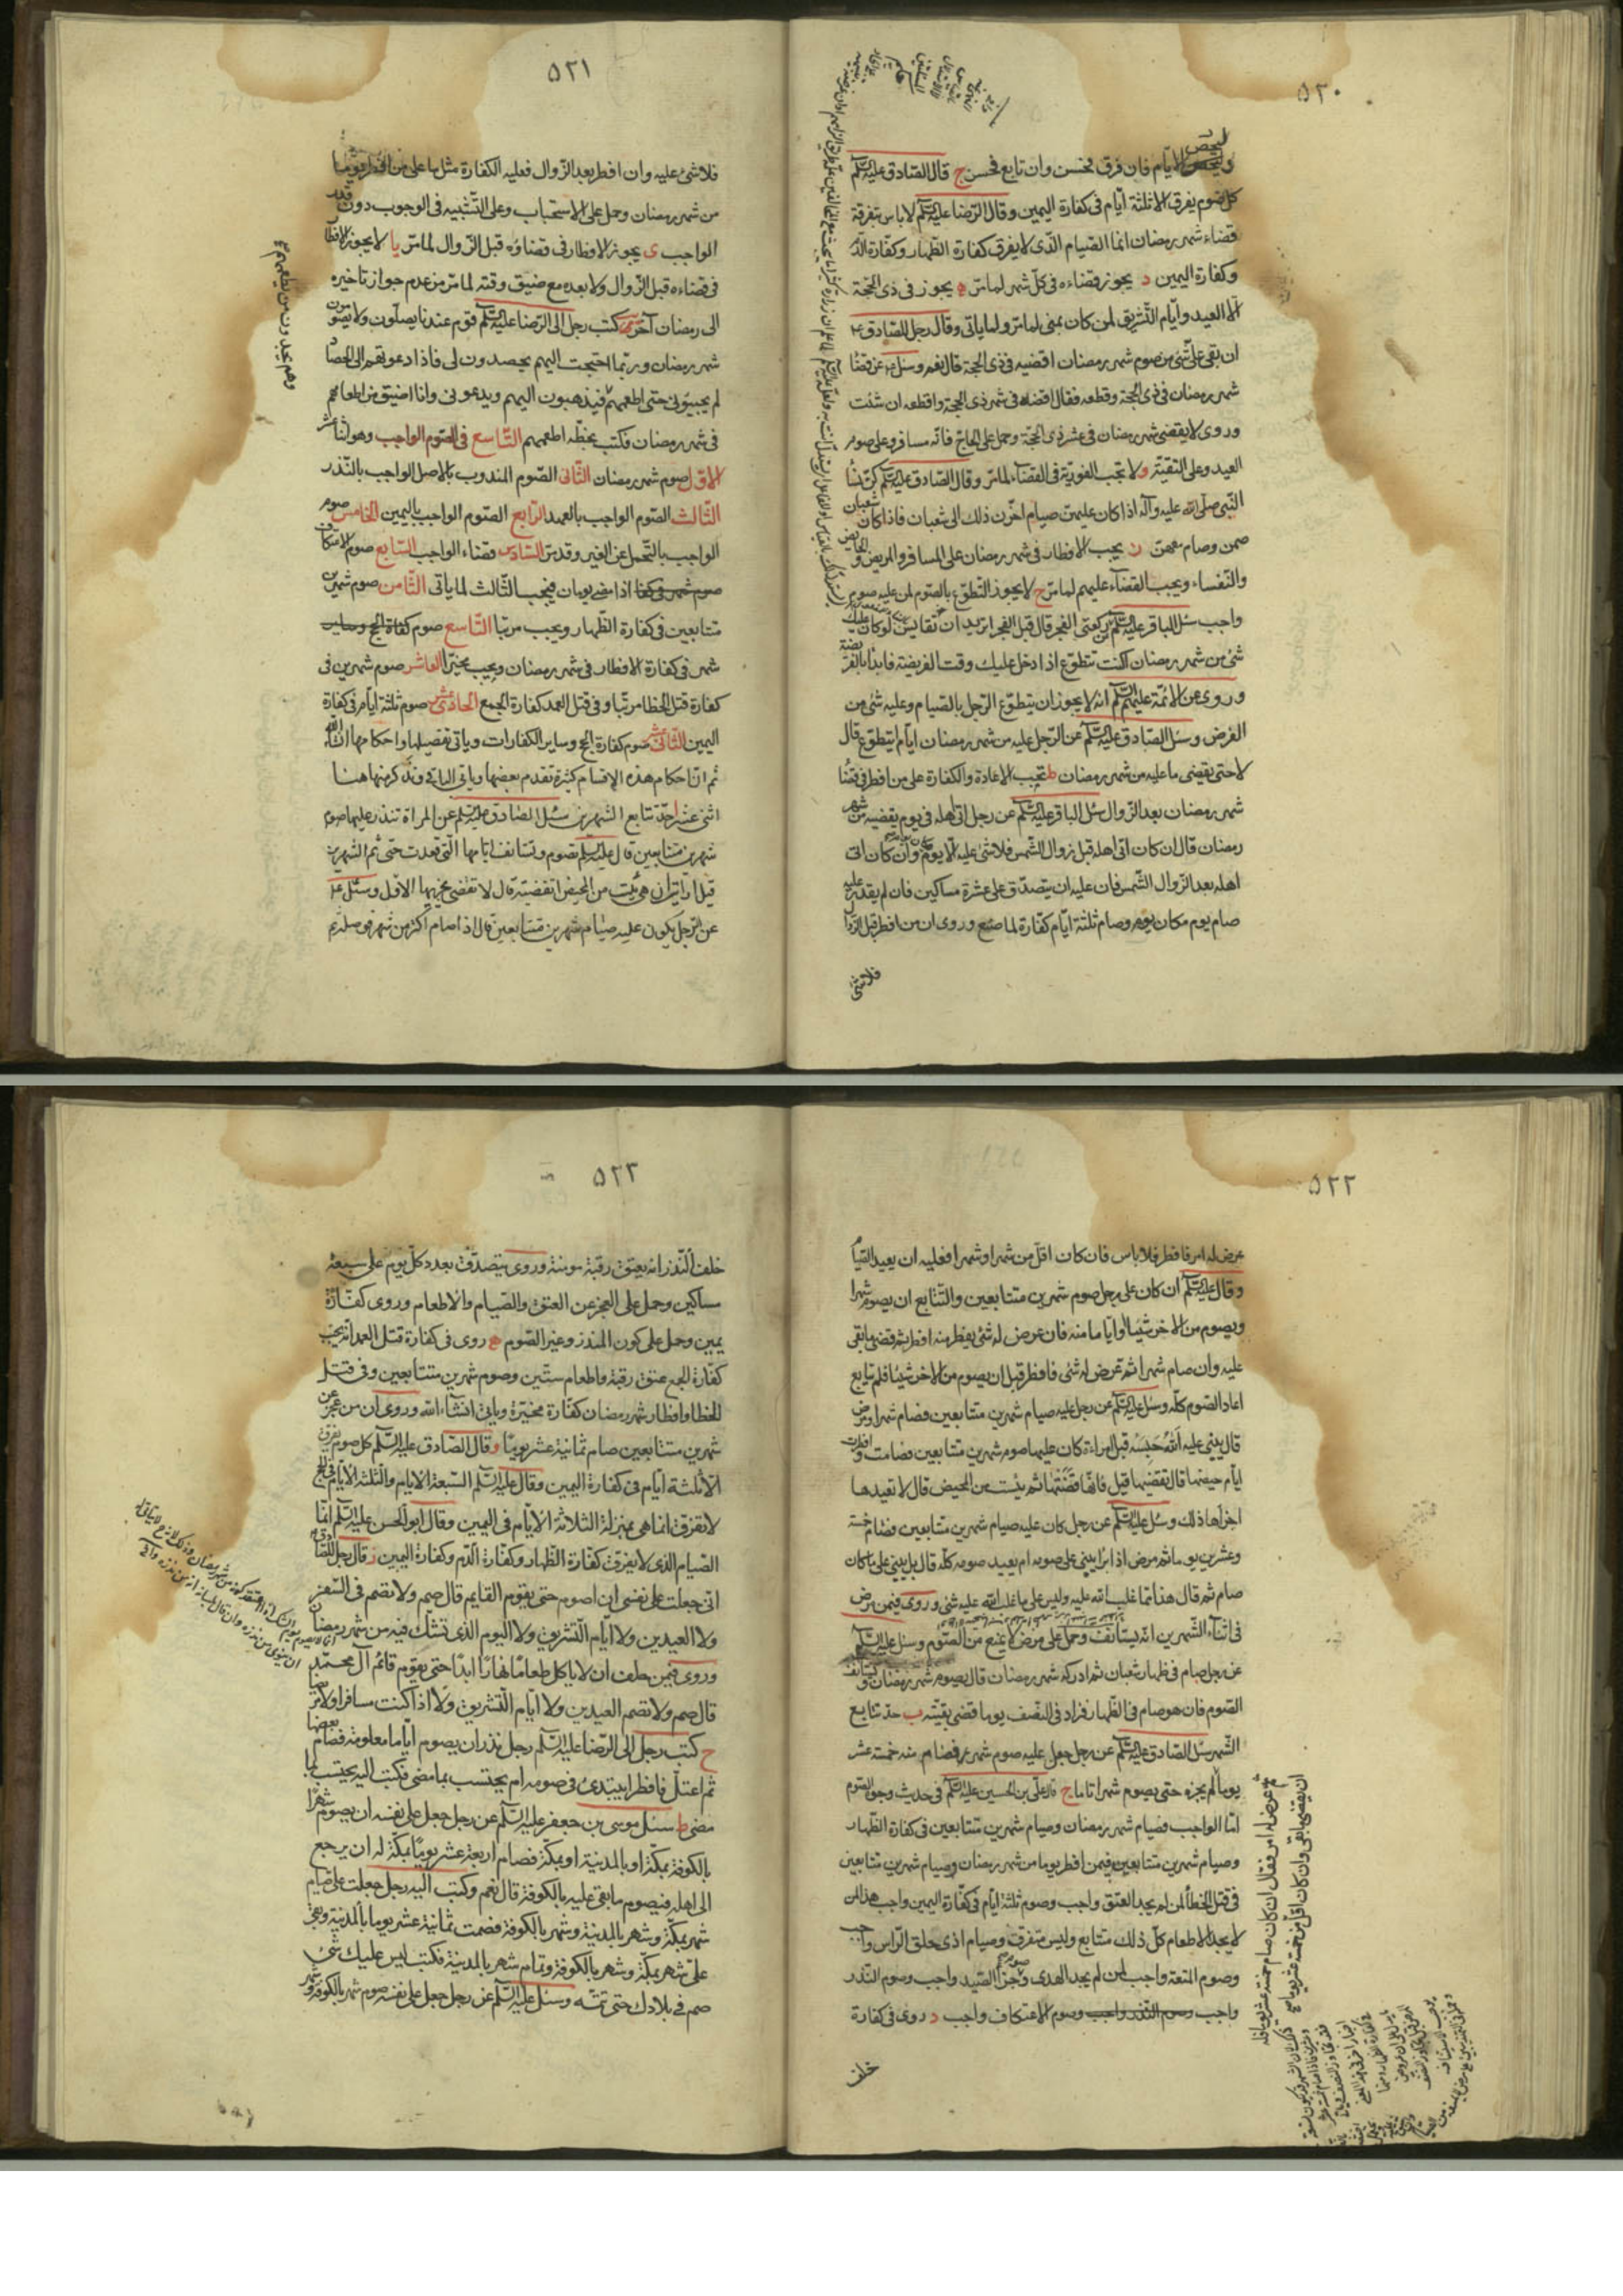 ٥٢٠
وليحص الايّام فان فرق فحسن وان تابع فحسن ج قال الصّادق عليه السلم
كل صوم يفرق الا ثلثة ايّام فى كفارة اليمين وقال الرّضا عليه السلم لا باس بتفرقة
قضاء شهر رمضان انما الصّيام الذى لا يفرق كفارة الظهار وكفارة الدّم
وكفارة اليمين د يجوز قضاءه فى كلّ شهر لما مرّ ه يجوز فى ذى الحجّة
الّا العيد وايّام التّشريق لمن كان بمنى لما مرّ ولما ياتى وقال رجل للصّادق ع
ان بقى علىّ شئ من صوم شهر رمضان اقضيه فى ذى الحجة قال نعم وسئل ع عن قضاء
شهر رمضان فى ذى الحجّة وقطعه فقال اقضه فى شهر ذى الحجة واقطعه ان شئت
وروى لا يقضى شهر رمضان فى عشر ذى الحجّة وحمل على الحاجّ فانّه مسافر وعلى صوم
العيد وعلى التقيّة و لا تجب الفوريّة فى القضاء لما مرّ وقال الصّادق عليه السلم كنّ نساء
النّبى صلّى الله عليه وآله اذا كان عليهنّ صيام اخّرن ذلك الى شعبان فاذا كان شعبان
صمن وصام معهنّ ز يجب الافطار فى شهر رمضان على المسافر والمريض والحائض
والنّفساء ويجب القضاء عليهم لما مرّ ح لا يجوز التّطوّع بالصّوم لمن عليه صوم
واجب سئل الباقر عليه السلم عن ركعتى الفجر قال قبل الفجر اتريد ان تقايس لو كان عليك
شئ من شهر رمضان اكنت تتطوّع اذا دخل عليك وقت الفريضة فابدأ بالفريضة
وروى عن الائمّة عليهم السلم انه لا يجوز ان يتطوّع الرّجل بالصّيام وعليه شئ من
الفرض وسئل الصّادق عليه السلم عن الرّجل عليه من شهر رمضان ايّام ايتطوّع قال
لا حتى يقضى ما عليه من شهر رمضان ط تجب الاعادة والكفارة على من افطر فى قضاء
شهر رمضان بعد الزّوال سئل الباقر عليه السلم عن رجل اتى اهله فى يوم يقضيه من شهر
رمضان قال ان كان اتى اهله قبل زوال الشّمس فلا شئ عليه الّا يوم مكان يوم وان كان اتى
اهله بعد الزّوال الشّمس فان عليه ان يتصدّق على عشرة مساكين فان لم يقدر عليه
صام يوم مكان يوم وصام ثلثة ايّام كفّارة لما صنع وروى ان من افطر قبل الزّوال
فلا شئ
٥٢١
فلا شئ عليه وان افطر بعد الزّوال فعليه الكفارة مثل ما على من افطر يوما
من شهر رمضان وحمل على الاستحباب وعلى التّشبيه فى الوجوب دون قدر
الواجب ى يجوز الافطار فى قضاؤه قبل الزّوال لما مرّ يا لا يجوز الافطار
فى قضاءه قبل الزّوال ولا بعده مع ضيق وقته لما مرّ من عدم جواز تاخيره
الى رمضان آخر يب كتب رجل الى الرّضا عليه السلم قوم عندنا يصلّون ولا يصومون
شهر رمضان وربّما احتجت اليهم يحصدون لى فاذا دعوتهم الى الحصاد
لم يجيبونى حتى اطعمهم فيذهبون اليهم ويدعونى وانا اضيق من اطعامهم
فى شهر رمضان فكتب بخطّه اطعمهم التّاسع فى الصّوم الواجب وهو اثنا عشر
الاوّل صوم شهر رمضان الثّانى الصّوم المندوب بالاصل الواجب بالنّذر
الثّالث الصّوم الواجب بالعهد الرّابع الصّوم الواجب باليمين الخامس صوم
الواجب بالتّحمل عن الغير وقد مرّ السّادس قضاء الواجب السّابع صوم الاعتكاف
صوم شهر وكفا اذا مضى يومان فيجب الثّالث لما ياتى الثّامن صوم شهرين
متتابعين فى كفارة الظّهار ويجب مرتبا التّاسع صوم كفارة الحج وساير
شهر فى كفارة الافطار فى شهر رمضان ويجب مخيّرا العاشر صوم شهرين فى
كفارة قتل الخطا مرتبا وفى قتل العمد كفارة الجمع الحادى عشر صوم ثلثة ايّام فى كفارة
اليمين الثّانى عشر صوم كفارة الحج وساير الكفارات وياتى تفصيلها واحكامها انشاء الله
ثم انّ احكام هذه الاقسام كثيرة تقدم بعضها وياتى الباقى ونذكر منها هنا
اثنى عشر ا حدّ تتابع الشهرين سئل الصّادق عليه السلم عن المراة تنذر عليها صوم
شهرين متتابعين قال عليه السلم تصوم وتستانف ايّامها الّتى قعدت حتى تتم الشهرين
قيل ارايت ان هى يئست من المحيض اتقضيه قال لا تقضى يجزيها الاوّل وسئل ع
عن الرّجل يكون عليه صيام شهرين متتابعين قال اذا صام اكثر من شهر فوصله ثم
وهم يجدون من يطعمهم ع
٥٢٢
عرض له امر فافطر فلا باس فان كان اقلّ من شهر او شهرا فعليه ان يعيد الصّيام
وقال عليه السلم ان كان على رجل صوم شهرين متتابعين والتّتابع ان يصوم شهرا
ويصوم من الاخر شيئا او ايّاما منه فان عرض له شئ يفطر منه افطر ثم قضى ما بقى
عليه وان صام شهرا ثم عرض له شئ فافطر قبل ان يصوم من الاخر شيئا فلم يتابع
اعاد الصّوم كلّه وسئل عليه السلم عن رجل عليه صيام شهرين متتابعين فصام شهرا ومرض
قال يبنى عليه الله حبسه قيل امراة كان عليها صوم شهرين متتابعين فصامت وافطرت
ايّام حيضها قال تقضيها قيل فانّها قضتها ثم يئست من المحيض قال لا تعيدها
اجزاها ذلك وسئل عليه السلم عن رجل كان عليه صيام شهرين متتابعين فصام خمسة
وعشرين يوما ثم مرض اذا برا يبنى على صومه ام يعيد صومه كلّه قال بل يبنى على ما كان
صام ثم قال هذا ممّا غلب الله عليه وليس على ما غلب الله عليه شئ وروى فيمن مرض
فى اثناء الشّهرين انّه يستانف وحمل على مرض لا يمنع من الصّوم وسئل عليه السلم
عن رجل صام فى ظهار شعبان ثم ادركه شهر رمضان قال يصوم شهر رمضان ويستانف
الصّوم فان هو صام فى الظّهار فزاد فى النّصف يوما قضى بقيّته ب حدّ تتابع
الشّهر سئل الصّادق عليه السلم عن رجل جعل عليه صوم شهر فصام منه خمسة عشر
يوما لم يجزه حتى يصوم شهرا تاما ج قال علىّ بن الحسين عليه السلم فى حديث وجوه الصّوم
امّا الواجب فصيام شهر رمضان وصيام شهرين متتابعين فى كفارة الظهار
وصيام شهرين متتابعين فيمن افطر يوما من شهر رمضان وصيام شهرين متتابعين
فى قتل الخطا لمن لم يجد العتق واجب وصوم ثلثة ايّام فى كفّارة اليمين واجب هذا لمن
لا يجد الاطعام كلّ ذلك متتابع وليس متفرق وصيام اذى حلق الرّاس واجب
وصوم المتعة واجب لمن لم يجد الهدى وصوم جزاء الصّيد واجب وصوم النّذر
واجب وصوم النّذر واجب وصوم الاعتكاف واجب د روى فى كفارة
خلف
٥٢٣
خلف النّذر انه يعتق رقبة مؤمنة وروى يتصدّق بعدد كلّ يوم على سبعة
مساكين وحمل على العجز عن العتق والصّيام والاطعام وروى كفّارة
يمين وحمل على كون المنذر وغير الصّوم ه روى فى كفارة قتل العمد انّه يجب
كفّارة الجمع عتق رقبة واطعام ستّين وصوم شهرين متتابعين وفى قتل
الخطا وافطار شهر رمضان كفّارة مخيّرة وياتى انشاء الله وروى ان من عجز عن
شهرين متتابعين صام ثمانية عشر يوما و قال الصّادق عليه السلم كل صوم يفرق
الّا ثلثة ايّام فى كفارة اليمين وقال عليه السلم السّبعة الايام والثّلثة الايّام فى الحج
لا تفرّق انما هى بمنزلة الثلاثة الايّام فى اليمين وقال ابو الحسن عليه السلم انّما
الصّيام الذى لا يفرق كفّارة الظهار وكفّارة الدّم وكفّارة اليمين ز قال رجل للصّادق ع
انى جعلت على نفسى ان اصوم حتى يقوم القايم قال صم ولا تصم فى السّفر
ولا العيدين ولا ايّام التّشريق ولا اليوم الذى تشكّ فيه من شهر رمضان
وروى فيمن حلف ان لا ياكل طعاما نهارا ابدا حتى يقوم قائم آل محمّد
قال صم ولا تصم العيدين ولا ايّام التّشريق ولا اذا كنت مسافرا ولا مريضا
ح كتب رجل الى الرّضا عليه السلم رجل نذر ان يصوم ايّاما معلومة فصام بعضها
ثم اعتلّ فافطر ايبتدئ فى صومه ام يحتسب بما مضى فكتب اليه يحتسب بما
مضى ط سئل موسى بن جعفر عليه السلم عن رجل جعل على نفسه ان يصوم شهرا
بالكوفة وشهرا بالمدينة وبمكّة فصام اربعة عشر يوما بمكّة له ان يرجع
الى اهله فيصوم ما بقى عليه بالكوفة قال نعم وكتب اليه رجل جعلت علىّ صيام
شهر بمكّة وشهر بالمدينة وشهر بالكوفة فصمت ثمانية عشر يوما بالمدينة وبقى
علىّ شهر بمكّة وشهر بالكوفة وتمام شهر بالمدينة فكتب ليس عليك شئ
صم فى بلادك حتى تتمّه وسئل عليه السلم عن رجل جعل على نفسه صوم شهر بالكوفة وشهر